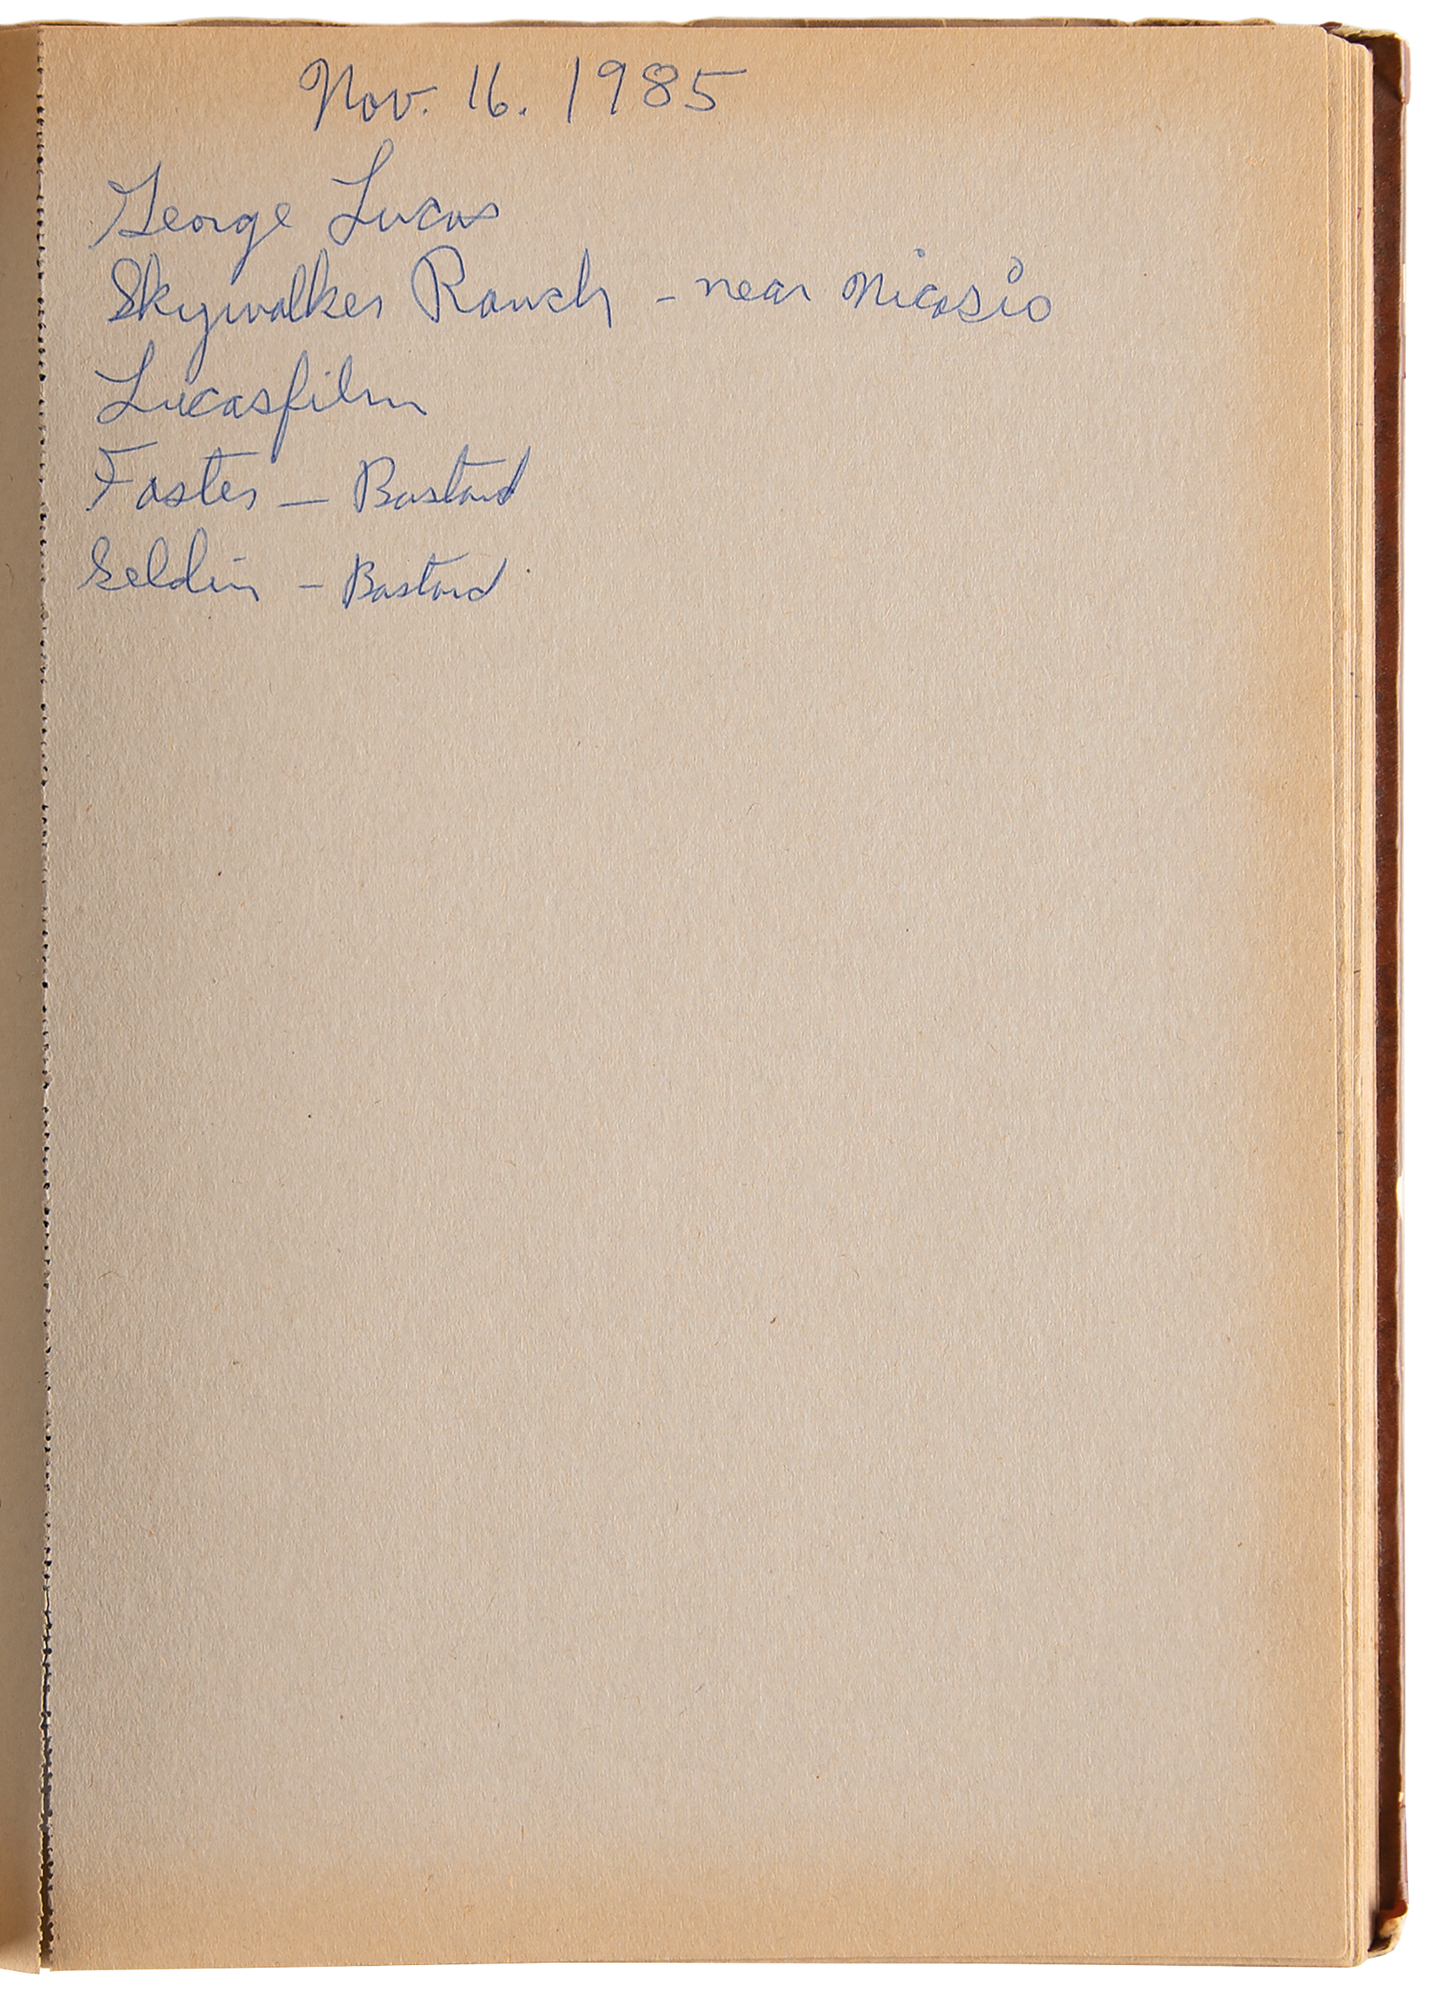 Nov. 16. 1985
George Lucas
Skywalker Ranch - near Nicasio
Lucasfilm
Foster - Bastard
Geldin - Bastard